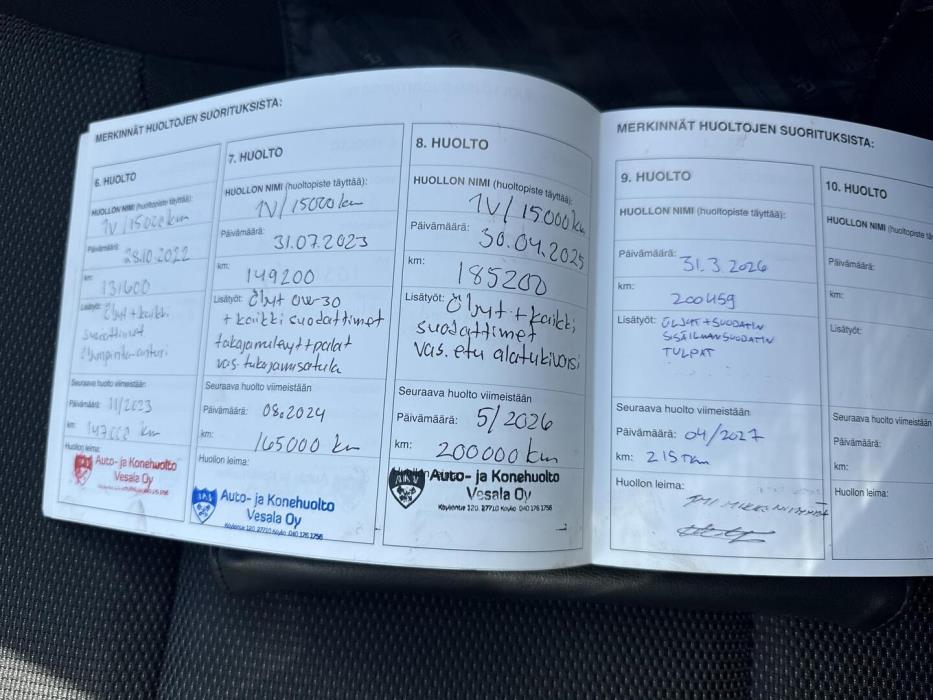 MERKINNÄT HUOLTOJEN SUORITUKSISTA:
6. HUOLTO
HUOLLON NIMI (huoltopiste täyttää):
1V/15000km
Päivämäärä: 28.10.2022
km:
131600
Lisätyöt: Öljyt + kaikki
suodattimet
öljynpinta-anturi
Seuraava huolto viimeistään
Päivämäärä: 11/2023
km: 147000 km
Huollon leima:
Auto- ja Konehuolto
Vesala Oy
7. HUOLTO
HUOLLON NIMI (huoltopiste täyttää):
1V/15000km
Päivämäärä: 31.07.2023
km:
149200
Lisätyöt: Öljyt 0W-30
+ kaikki suodattimet
takajarrulevyt+palat
vas. takajarrusatula
Seuraava huolto viimeistään
Päivämäärä: 08.2024
km: 165000 km
Huollon leima:
Auto- ja Konehuolto
Vesala Oy
Köyliöntie 120, 27710 Köyliö 040 176 1756
8. HUOLTO
HUOLLON NIMI (huoltopiste täyttää):
1V/15000km
Päivämäärä: 30.04.2025
km:
185200
Lisätyöt: Öljyt + kaikki
suodattimet
vas. etu alatukivarsi
Seuraava huolto viimeistään
Päivämäärä: 5/2026
km: 200000 km
Auto- ja Konehuolto
Vesala Oy
Köyliöntie 120, 27710 Köyliö 040 176 1756
MERKINNÄT HUOLTOJEN SUORITUKSISTA:
9. HUOLTO
HUOLLON NIMI (huoltopiste täyttää):
Päivämäärä: 31.3.2026
km:
200459
Lisätyöt: ÖLJYT + SUODATIN
SISÄILMANSUODATIN
TULPAT
Seuraava huolto viimeistään
Päivämäärä: 04/2027
km: 215 TKM
Huollon leima:
TMI MIKKO
10. HUOLTO
HUOLLON NIMI (huoltopiste
Päivämäärä:
km:
Lisätyöt:
Seuraava huolto viimeistään
Päivämäärä:
km:
Huollon leima: